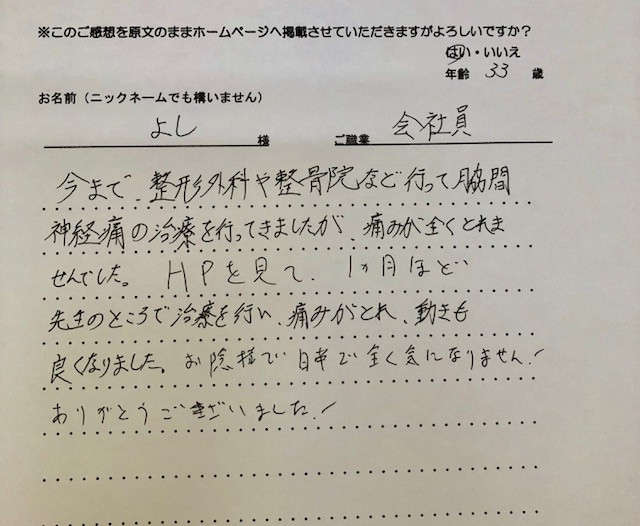 ※このご感想を原文のままホームページへ掲載させていただきますがよろしいですか?
はい・いいえ
年齢 33 歳
お名前(ニックネームでも構いません)
よし 様 ご職業 会社員
今まで、整形外科や整骨院など行って脇間
神経痛の治療を行ってきましたが、痛みが全くとれま
せんでした。HPを見て、1ヵ月ほど
先生のところで治療を行い、痛みがとれ、動きも
良くなりました。お陰様で日常で全く気になりません!
ありがとうございました!